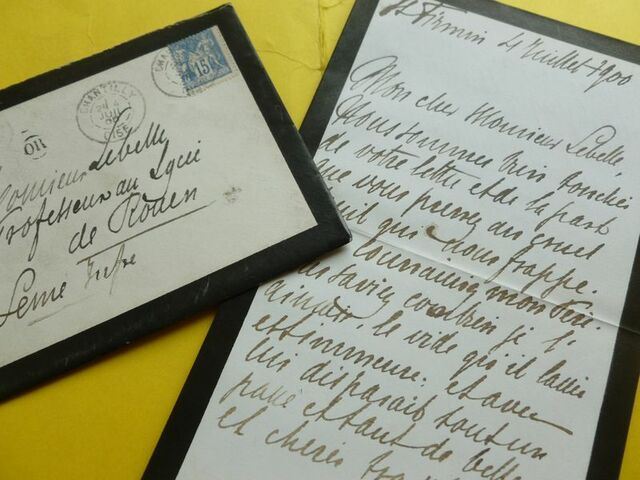 CHANTILLY
OISE
15
OR
Monsieur Lebelle,
Professeur au Lycée
de Rouen
Seine Infre
St Firmin 4 Juillet 1900
Mon cher Monsieur Lebelle,
Nous sommes très touchés
de votre lettre et de la part
que vous prenez au cruel
deuil qui nous frappe.
mon Père.
saviez combien je l'
aimais, le vide qu'il laisse
est immense. et avec
lui disparaît tout un
passé et tant de belles
et chères